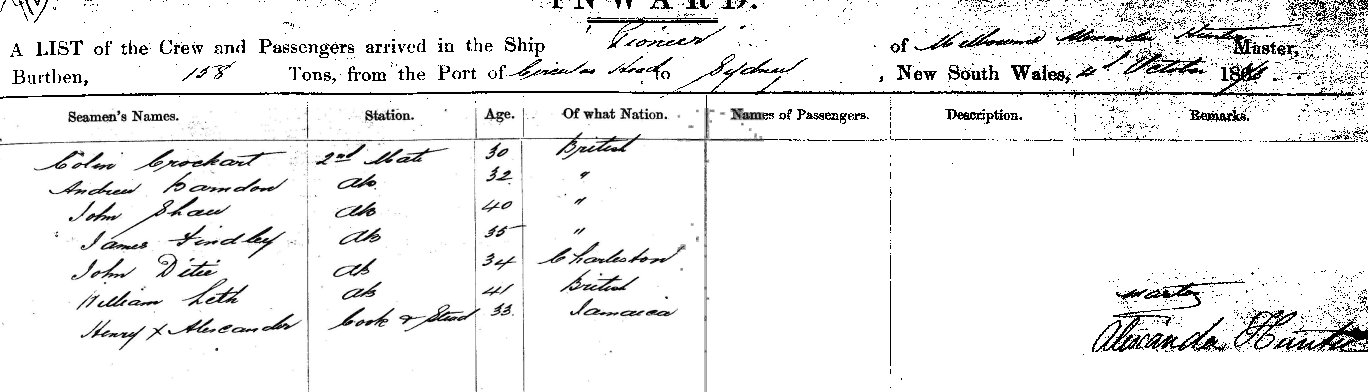 INWARD.
A LIST of the Crew and Passengers arrived in the Ship Pioneer of Melbourne Alexander Hunter Master,
Burthen, 158 Tons, from the Port of Circular Head to Sydney, New South Wales, 4th October 18
Seamen's Names. Station. Age. Of what Nation. Names of Passengers. Description. Remarks.
Colin Crockart 2nd Mate 30 British
Andrew 32 "
John Shaw ab 40 "
James Findley ab 35 "
John Ditie ab 34 Charleston
William Leth ab 41 British
Henry x Alexander Cook & Stwd 33 Jamaica
Master
Alexander Hunter